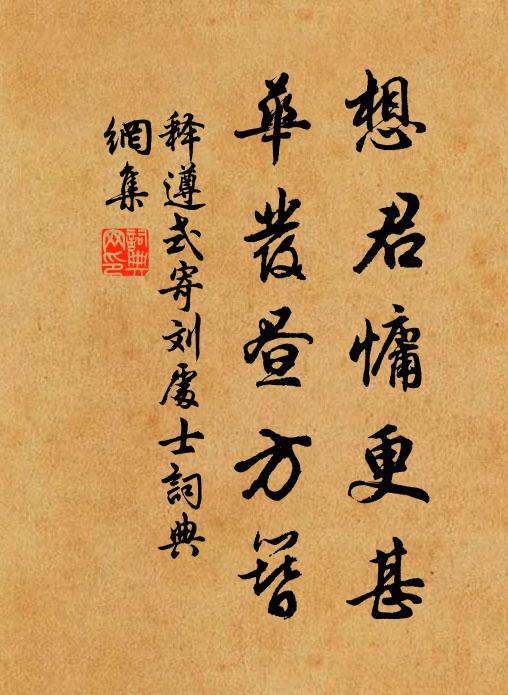 想君慵更甚
華發昼方簪
释遵式寄刘處士詞典
網集
詞典